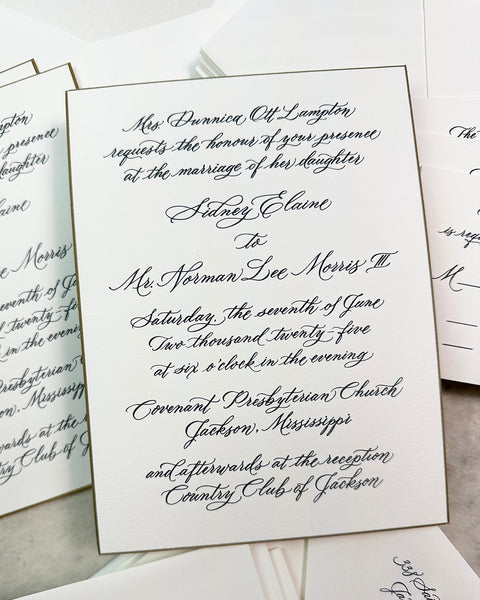 Mrs. Dunnica Ott Lampton
requests the honour of your presence
at the marriage of her daughter
Sidney Elaine
to
Mr. Norman Lee Morris III
Saturday, the seventh of June
Two thousand twenty-five
at six o'clock in the evening
Covenant Presbyterian Church
Jackson, Mississippi
and afterwards at the reception
Country Club of Jackson
presence
daughter
Elaine
Morris
seventh of
twenty-five
in the evening
Presbyterian
Jackson, Mississippi
afterwards at the
Country Club of
The
M
338